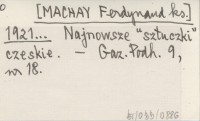 [MACHAY Ferdynand ks.]
1921... Najnowsze "sztuczki"
czeskie. — Gaz. Podh. 9,
nr 18.